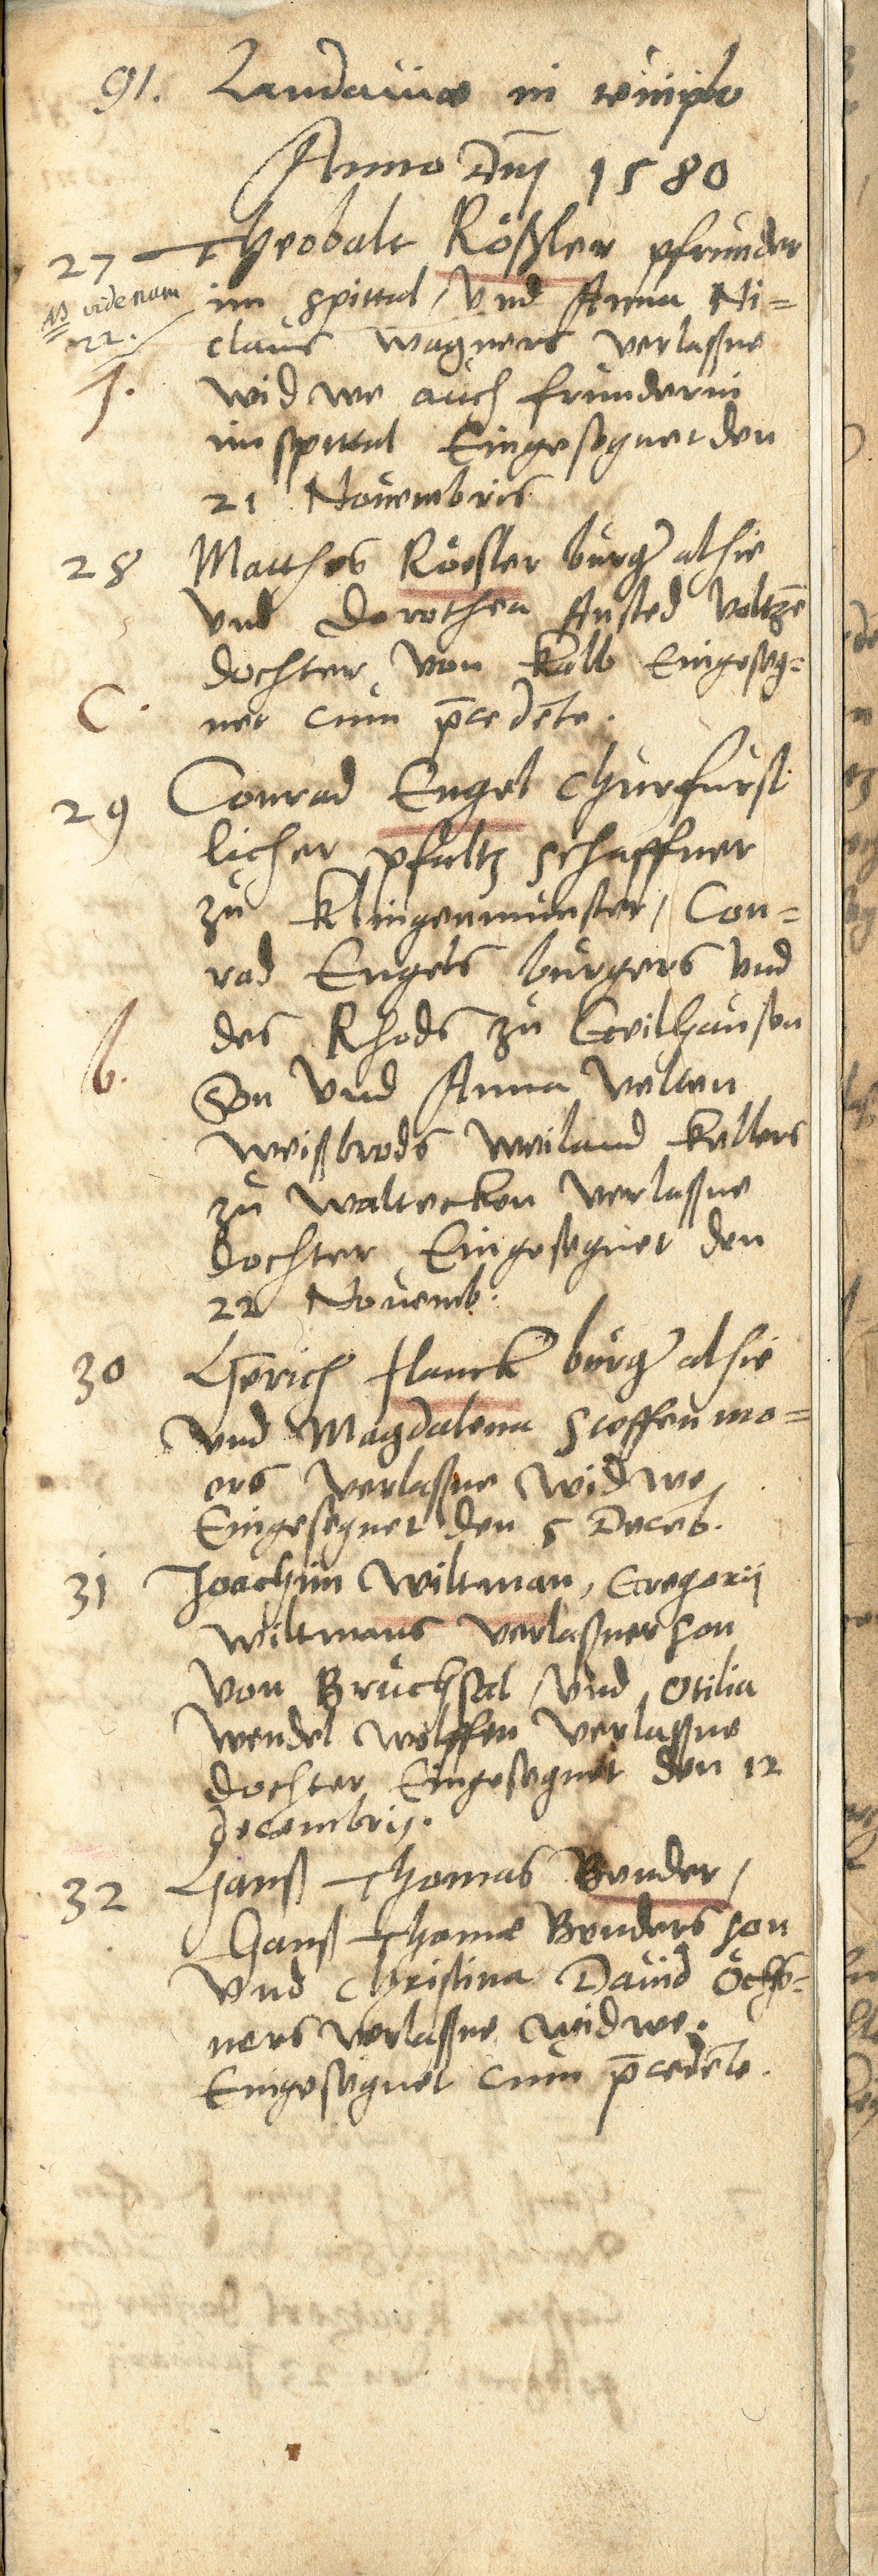 91. Landauiae in templo
Anno Dnj 1580
27 Theobalt Rößler pfrunder
NB vide nam im spittal / vnd Anna Ni=
22. claus Wagners verlaßne
J. widwe auch frunderin
im spittal Eingesegnet den
21 Nouembris
28 Matthes Röesler burger alhie
vnd Dorothea Ansted Voltzen
dochter von Kalb Eingeseg=
C. net cum p̄cedēte.
29 Conrad Engel Churfurst
licher pfaltz schaffner
zu Klingenmunster / Con=
rad Engels burgers vnd
des Rhods zu Geilhausen
b. Son vnd Anna Velten
Weißbrods weiland Kellers
zu Waltecken verlaßne
dochter Eingesegnet den
22 Nouemb:
30 Henrich Hanck burger alhie
vnd Magdalena Steffen mo=
ers verlaßne widwe
Eingesegnet den 5 Deceb.
31 Joachim Wiltman, Gregorij
Wiltmans verlaßner son
von Bruchsal vnd Otilia
Wendel Wolffen verlaßne
dochter Eingesegnet den 12
decembris.
32 Hanß Thomas Bender /
Hanß Thomae Benders son
vnd Christina Dauid Öchs=
ners verlaßne widwe.
Eingesegnet cum p̄cedēte.